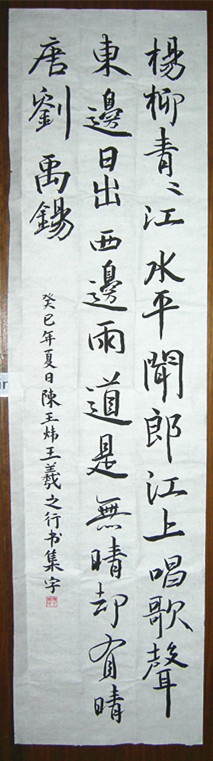 楊柳青〻江水平聞郎江上唱歌聲
東邊日出西邊雨道是無晴却有晴
唐劉禹錫
癸巳年夏日陳王炜王羲之行书集字